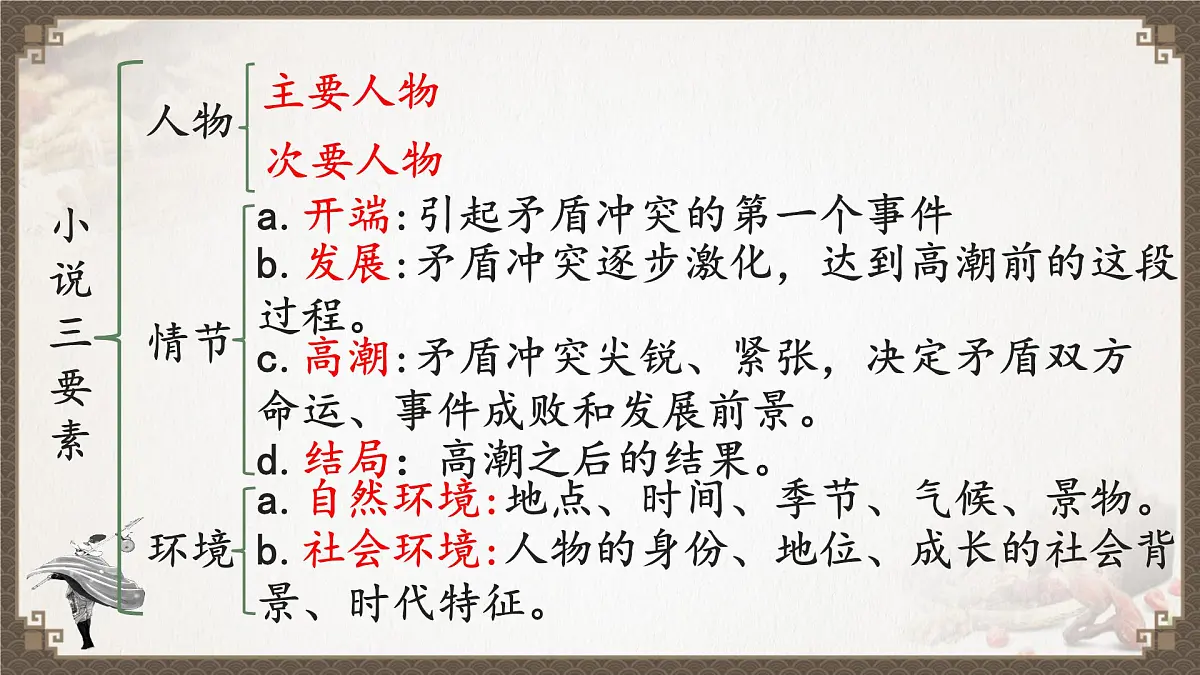 小说三要素
人物
主要人物
次要人物
情节
a. 开端:引起矛盾冲突的第一个事件
b. 发展:矛盾冲突逐步激化，达到高潮前的这段
过程。
c. 高潮:矛盾冲突尖锐、紧张，决定矛盾双方
命运、事件成败和发展前景。
d. 结局：高潮之后的结果。
环境
a. 自然环境:地点、时间、季节、气候、景物。
b. 社会环境:人物的身份、地位、成长的社会背
景、时代特征。